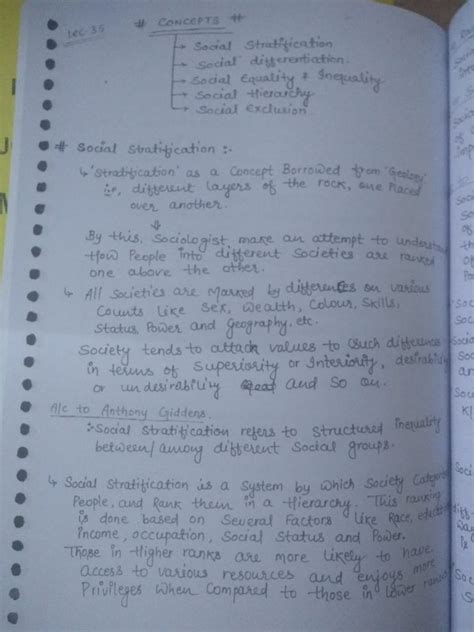 LEC 35
# CONCEPTS #
→ Social Stratification
→ Social differentiation.
→ Social Equality & Inequality
→ Social Hierarchy
→ Social Exclusion.
# Social Stratification :-
↳ 'Stratification' as a Concept Borrowed from 'Geology'
i.e, different layers of the rock, one Placed
over another.
⇓
By this, Sociologist make an attempt to understand
How People into different Societies are ranked
one above the other.
↳ All Societies are Marked by differences on various
Counts like Sex, Wealth, Colour, Skills,
Status Power and Geography, etc.
Society tends to attach values to Such differences
in terms of Superiority or Interiority, desirability
or undesirability and So on.
A/c to Anthony Giddens.
Social Stratification refers to Structured inequality
between/among different Social groups.
↳ Social Stratification is a System by which Society
People, and Rank them in a Hierarchy. This ranking
is done based on Several Factors like Race,
income, occupation, Social Status and Power.
Those in Higher ranks are more likely to have
access to various resources and enjoys more
Privileges When Compared to those in lower ranks